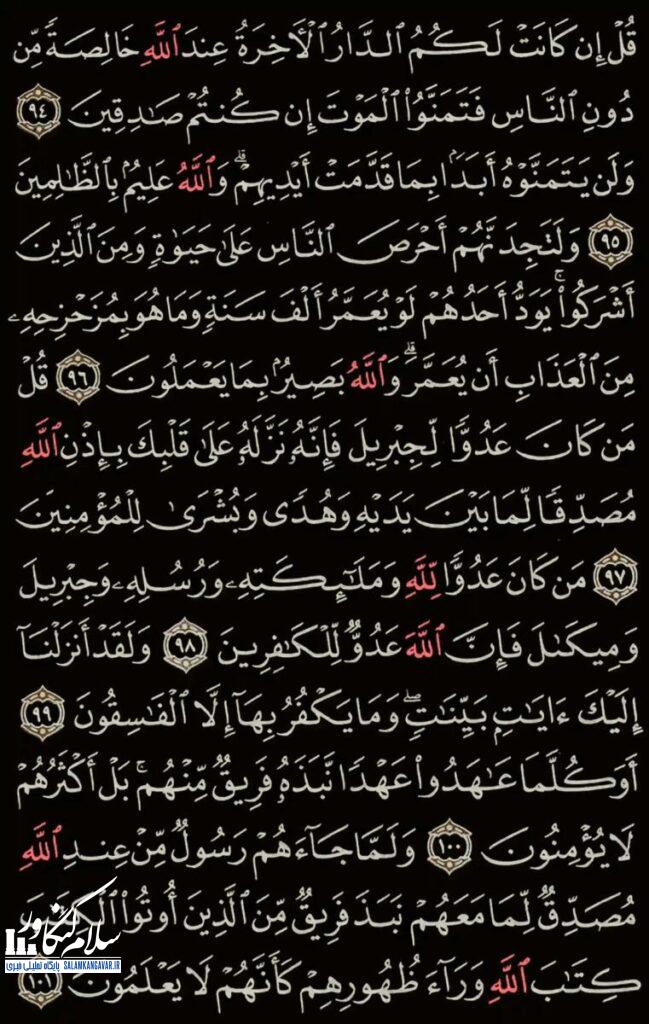 قُلْ إِن كَانَتْ لَكُمُ ٱلدَّارُ ٱلْأَخِرَةُ عِندَ ٱللَّهِ خَالِصَةً مِّن
دُونِ ٱلنَّاسِ فَتَمَنَّوُا۟ ٱلْمَوْتَ إِن كُنتُمْ صَٰدِقِينَ ٩٤
وَلَن يَتَمَنَّوْهُ أَبَدَۢا بِمَا قَدَّمَتْ أَيْدِيهِمْ ۗ وَٱللَّهُ عَلِيمٌۢ بِٱلظَّٰلِمِينَ
٩٥ وَلَتَجِدَنَّهُمْ أَحْرَصَ ٱلنَّاسِ عَلَىٰ حَيَوٰةٍ وَمِنَ ٱلَّذِينَ
أَشْرَكُوا۟ ۚ يَوَدُّ أَحَدُهُمْ لَوْ يُعَمَّرُ أَلْفَ سَنَةٍ وَمَا هُوَ بِمُزَحْزِحِهِۦ
مِنَ ٱلْعَذَابِ أَن يُعَمَّرَ ۗ وَٱللَّهُ بَصِيرٌۢ بِمَا يَعْمَلُونَ ٩٦ قُلْ
مَن كَانَ عَدُوًّا لِّجِبْرِيلَ فَإِنَّهُۥ نَزَّلَهُۥ عَلَىٰ قَلْبِكَ بِإِذْنِ ٱللَّهِ
مُصَدِّقًا لِّمَا بَيْنَ يَدَيْهِ وَهُدًى وَبُشْرَىٰ لِلْمُؤْمِنِينَ
٩٧ مَن كَانَ عَدُوًّا لِّلَّهِ وَمَلَٰٓئِكَتِهِۦ وَرُسُلِهِۦ وَجِبْرِيلَ
وَمِيكَىٰلَ فَإِنَّ ٱللَّهَ عَدُوٌّ لِّلْكَٰفِرِينَ ٩٨ وَلَقَدْ أَنزَلْنَآ
إِلَيْكَ ءَايَٰتٍۭ بَيِّنَٰتٍ ۖ وَمَا يَكْفُرُ بِهَآ إِلَّا ٱلْفَٰسِقُونَ ٩٩
أَوَكُلَّمَا عَٰهَدُوا۟ عَهْدًا نَّبَذَهُۥ فَرِيقٌ مِّنْهُم ۚ بَلْ أَكْثَرُهُمْ
لَا يُؤْمِنُونَ ١٠٠ وَلَمَّا جَآءَهُمْ رَسُولٌ مِّنْ عِندِ ٱللَّهِ
مُصَدِّقٌ لِّمَا مَعَهُمْ نَبَذَ فَرِيقٌ مِّنَ ٱلَّذِينَ أُوتُوا۟ ٱلْكِتَٰبَ
كِتَٰبَ ٱللَّهِ وَرَآءَ ظُهُورِهِمْ كَأَنَّهُمْ لَا يَعْلَمُونَ ١٠١
سلام کنگاور
پایگاه تحلیلی خبری SALAMKANGAVAR.IR